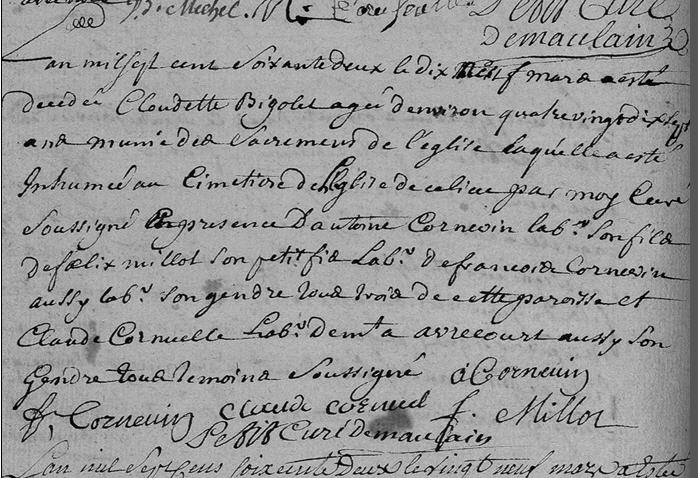 B. Michel
Petit Curé
Demaulain
an mil sept cent soixante deux le dix neuf mars a esté
decedée Claudette Bigolet agée denviron quatre vingt dix sept
ans munie des sacremens de l'eglise laquelle a esté
Inhumée au Cimetiere de l'Eglise de ce lieu par moy Curé
soussigné En presence D'antoine Cornevin lab.r son fils
de fælix millot son petit fis Lab.r de francois Cornevin
aussy lab.r son gendre tous trois de cette paroisse et
Claude Cornuelle Lab.r Dem.t a avrecourt aussy son
Gendre tous temoins soussigné a Cornevin
fr. Cornevin claude cornuel f. Millot
Petit Curé Demaulain
Lan mil sept cens soixente Deux le vingt neuf mars a Estée